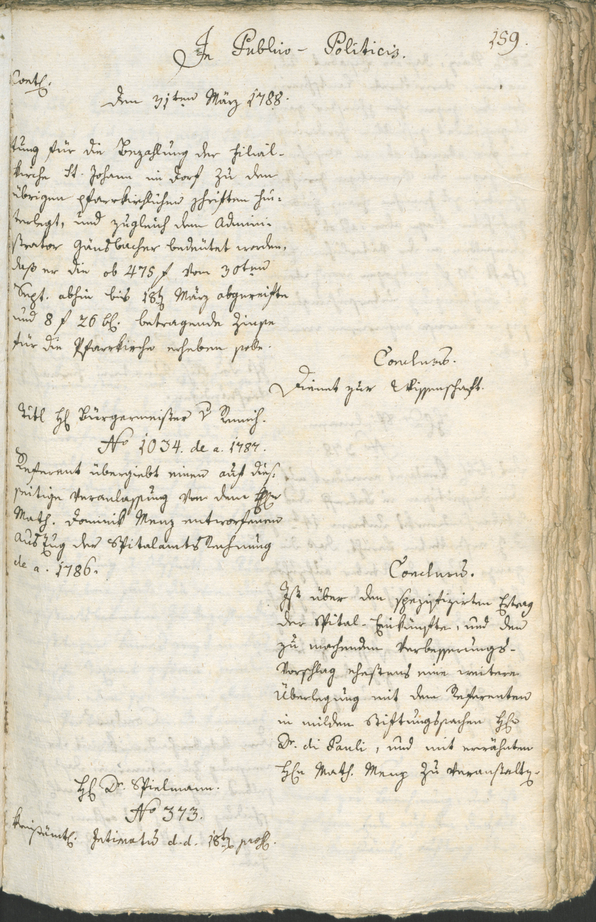 In Publico-Politicis.
159.
Cont.
den 31ten März 1788.
tung für die Bezahlung der Filial-
kirche St. Johann im Dorf zu den
übrigen pfarrkirchlichen Schriften hin-
terlegt, und zugleich dem Admini-
strator Gänsbacher bedeutet worden,
daß er die ob 475 f vom 30ten
Sept. abhin bis 18t März abgereifte
und 8 f 26 betragende Zinse
für die Pfarrkirche erheben solle.
Conclusum.
Dient zur Wissenschaft.
Titl H Bürgermeister
No 1034. de a. 1787.
Referent übergiebt einen auf dies-
seitige Veranlassung von dem
Math. Dominik Menz entworfenen
Auszug der Spitalamts Rechnung
de a. 1786.
Conclusum.
Ist über den spezifizirten Ertrag
der Spital-Einkünfte, und den
zu machenden Verbesserungs-
Vorschlag ehestens eine weitere
Überlegung mit dem Referenten
in milden Stiftungssachen
Dr. di Pauli, und mit erwähnten
Hn Math. Menz zu veranstalten.
H Dr. Spielmann.
No 373.
Kreisämtl. Intimatum d.d. 18t